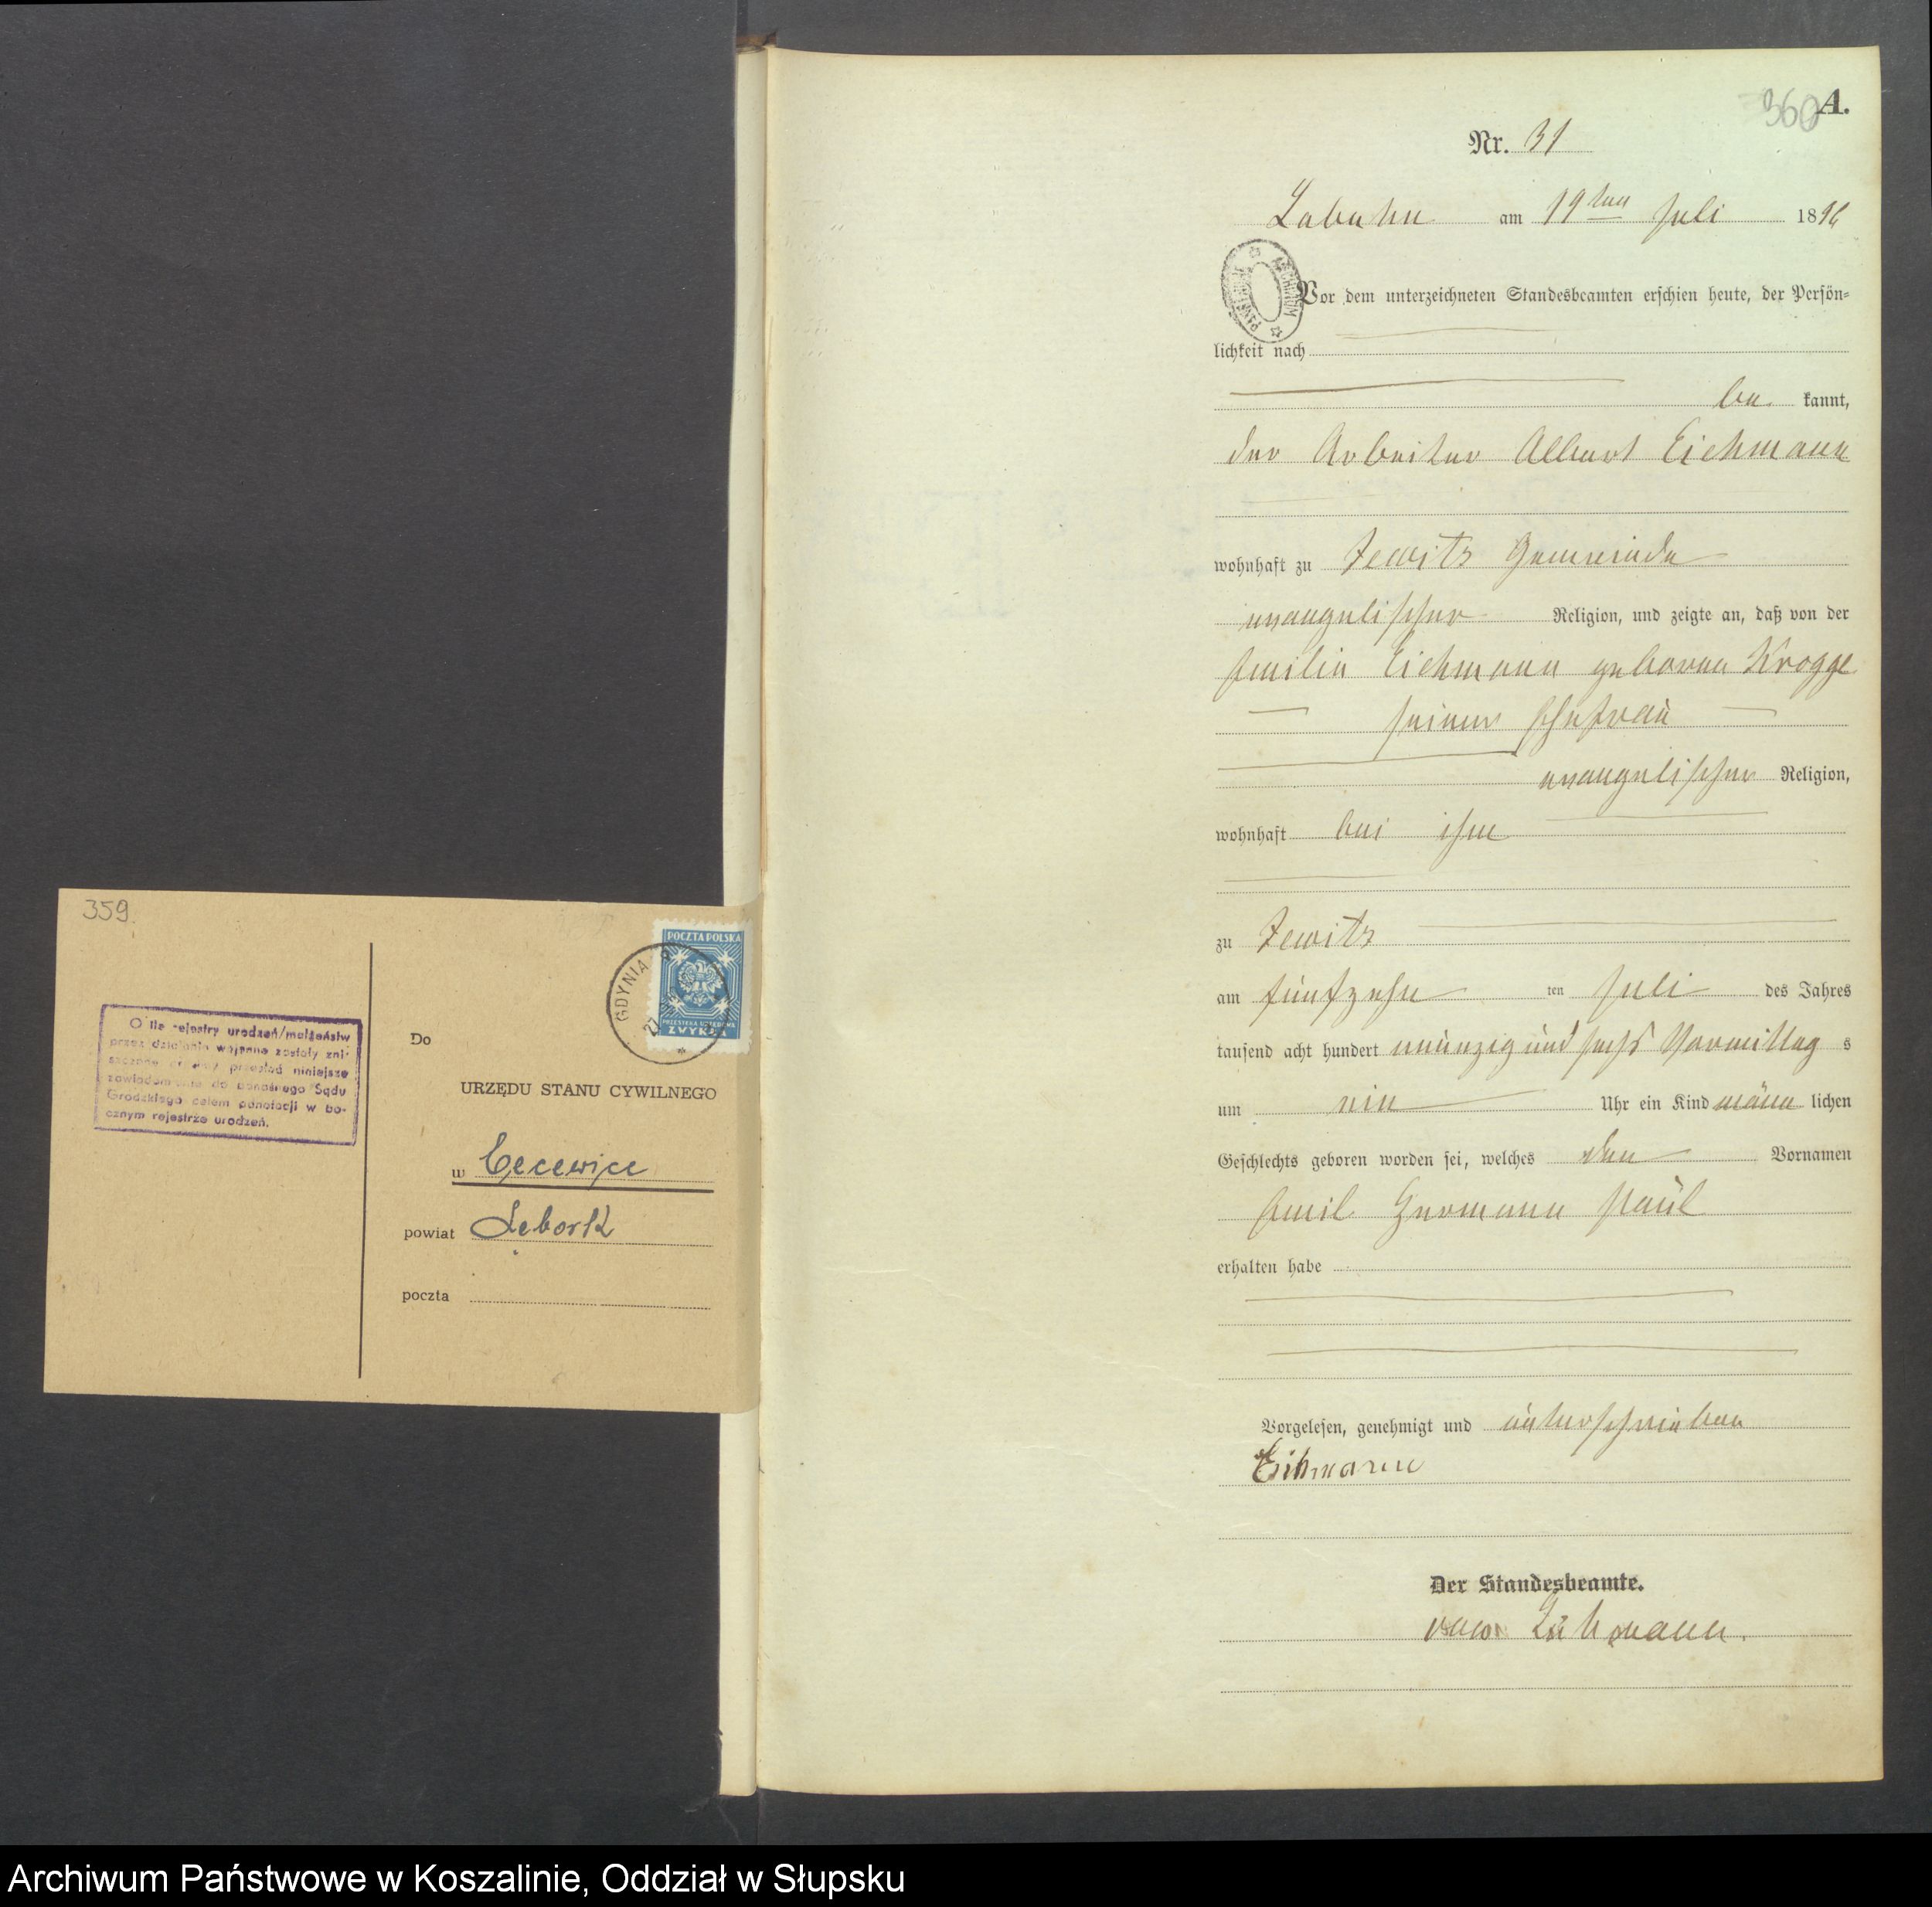 359.
POCZTA POLSKA
PRZESYŁKA URZĘDOWA
ZWYKŁA
GDYNIA
27
O ile rejestry urodzeń/małżeństw
przez działania wojenne zostały zni-
szczone należy przesłać niniejsze
zawiadomienie do Sądu
Grodzkiego celem adnotacji w bo-
cznym rejestrze urodzeń.
Do
URZĘDU STANU CYWILNEGO
w Cecewice
powiat Lębork
poczta
360 A.
Nr. 31
Labuhn am 19ten Juli 1896
ARCHIWUM PAŃSTWOWE
Vor dem unterzeichneten Standesbeamten erschien heute, der Persön-
lichkeit nach
be kannt,
der Arbeiter Albert Eichmann
wohnhaft zu Zewitz Gemeinde
evangelischer Religion, und zeigte an, daß von der
Emilie Eichmann geborene Krogge
seiner Ehefrau
evangelischer Religion,
wohnhaft bei ihm
zu Zewitz
am fünfzehn ten Juli des Jahres
tausend acht hundert neunzig und sechs Vormittag s
um ein Uhr ein Kind männ lichen
Geschlechts geboren worden sei, welches den Vornamen
Emil Hermann Paul
erhalten habe
Vorgelesen, genehmigt und unterschrieben
Eichmann
Der Standesbeamte.